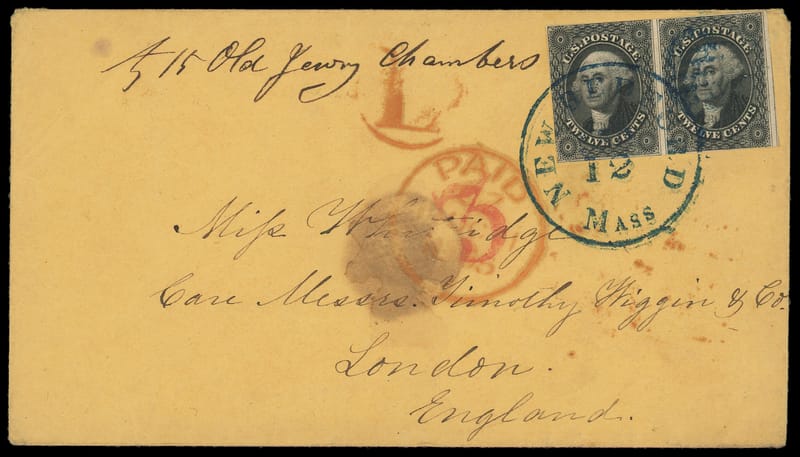 15 Old Jewry Chambers
U.S. POSTAGE
TWELVE CENTS
U.S. POSTAGE
TWELVE CENTS
L
NEW
12
MASS
PAID
3
Miss
Care Messrs. Timothy Wiggin & Co.
London.
England.